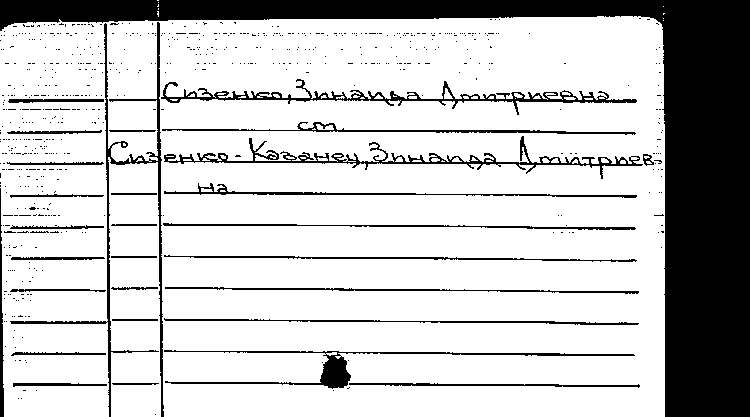 Сизенко, Зинаида Дмитриевна
см.
Сизенко-Казанец, Зинаида Дмитриев-
на